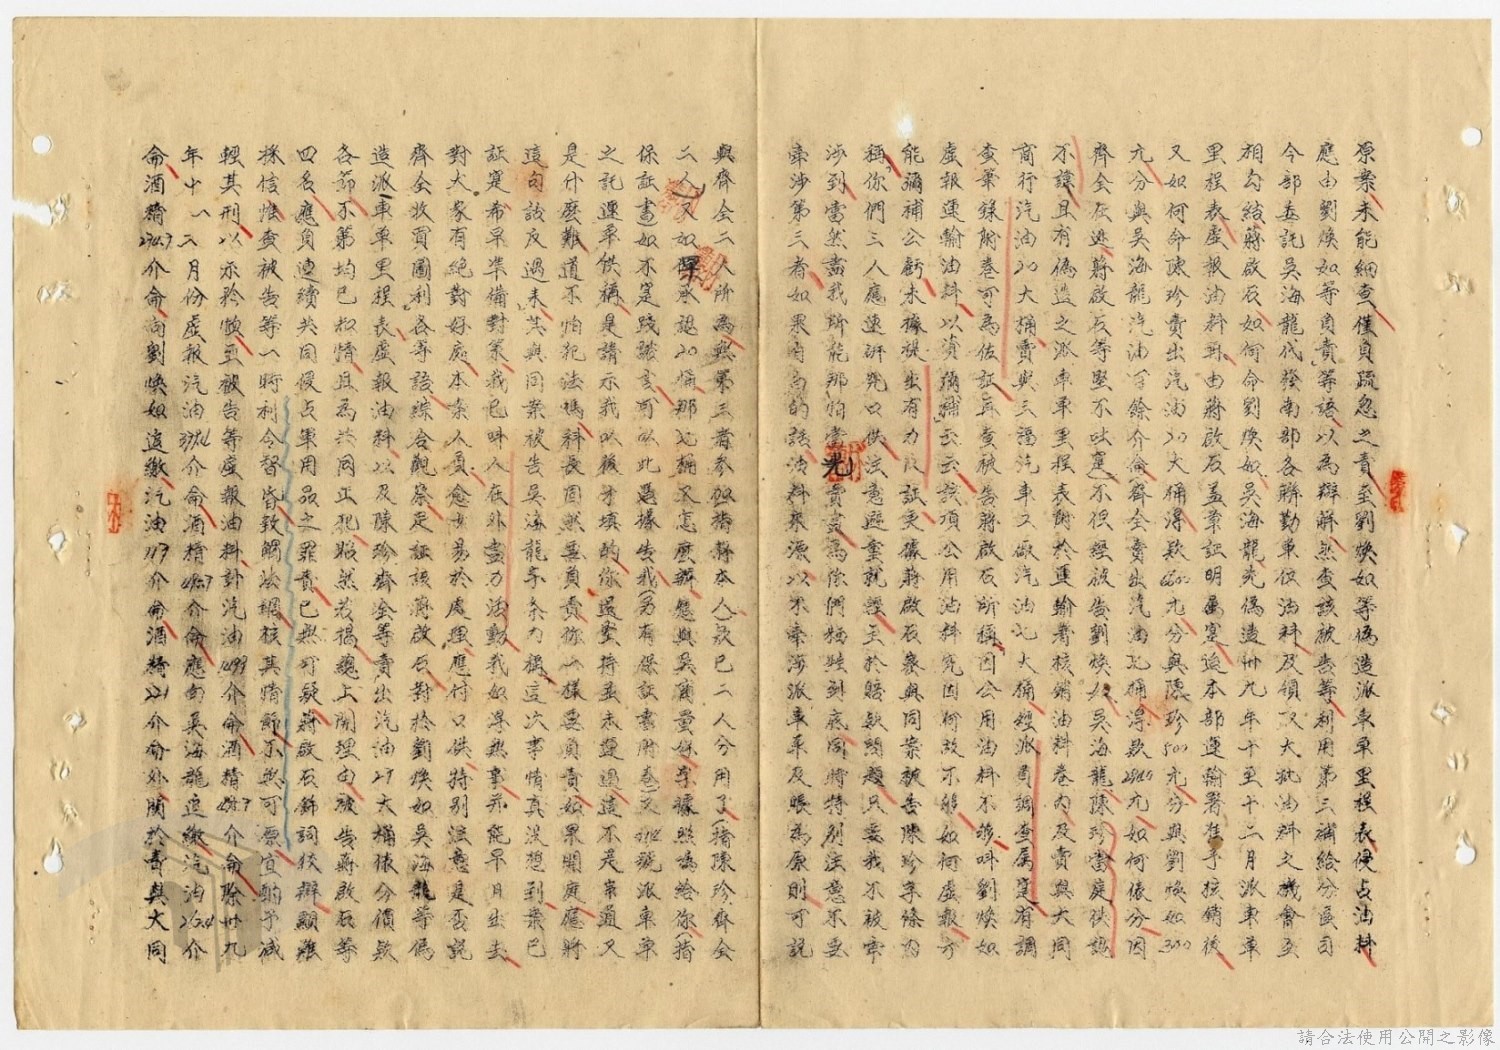 原案未能細查僅負疏忽之責至劉煥如等偽造派車單里程表侵占油料
應由劉煥如等負責等語以為辯解然查該被告等利用第三補給分區司
令部委託吳海龍代發南部各聯勤單位油料及領取大批油料之機會互
相勾結蔣啟石如何命劉煥如吳海龍先偽造卅九年十至十二月派車單
里程表虛報油料再由蔣啟石蓋章證明屬寔送本部運輸署准予核銷後
又如何命陳珍賣出汽油20大桶得款6600元分與陳珍500元分與劉煥如300
元分與吳海龍汽油百餘介侖齊全賣出汽油北桶得款 元如何依分因
齊全在逃蔣啟石等堅不吐寔不但經被告劉煥如吳海龍陳珍當庭供認
不諱且有偽造之派車單里程表附於運輸署核銷油料卷內及賣與大同
商行汽油20大桶賣與三福汽車工廠汽油七大桶經派員調查屬寔有調
查筆錄附卷可為佐証再查被告蔣啟石所稱因公用油料不夠叫劉煥如
虛報運輸油料以資彌補云云該項公用油料究因何故不夠如何虛報方
能彌補公虧未據提出有力反証更據蔣啟石密與同案被告陳珍字條內
稱你們三人應速研究口供注意避重就輕至於賠款問題只要我不被牽
涉到當然盡我所能那怕當光賣盡為你們犧牲到底同時特別注意不要
牽涉第三者如果有高的話油料來源以不牽涉派車單及賬為原則可說
與齊全二人所為與第三者參加指蔣本人款已二人分用了(指陳珍齊全
二人)又如 承認20桶那七桶不怎麼辦您與吳商量保字據照為給你(指
保証書)如不寔踐諾言可以此憑據告我(另有保証書附卷)又 號派車單
之記運單供稱是請示我以後才填的你還堅持並未運過這不是串通又
是什麼難道不怕犯法嗎科長固然要負責你一樣要負責如果開庭應將
這句話反過來其與同案被告吳海龍字条內稱這次事情真沒想到案已
証寔希早準備對策我已叫人在外盡力活動我如得無事并能早日出去
對大家有絕對好處本案人員愈少易於處理應付口供特別注意是否說
齊全收買圖利各等語綜合觀察足証該蔣啟石對於劉煥如吳海龍等偽
造派車單里程表虛報油料以及陳珍齊全等賣出汽油27大桶依分價款
各節不第均已知情且為共同正犯昭然若揭總上開理由被告蔣啟石等
四名應負連續共同侵占軍用品之罪責已無可疑蔣啟石飾詞狡辯顯難
採信惟查被告等一時利令智昏致觸法網核其情節不無可原宜酌予減
輕其刑以示矜恤至被告等虛報油料計汽油 介侖酒精 介侖除卅九
年十一二月份虛報汽油 介侖酒精 介侖應由吳海龍追繳汽油 介
侖酒精 介侖向劉煥如追繳汽油 介侖酒精 介侖外關於賣與大同
請合法使用公開之影像